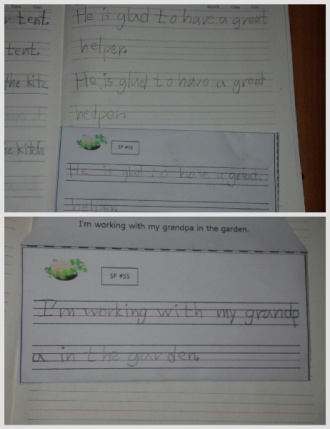 tent.
He is glad to have a great
tent.
helper.
the kitc
He is glad to have a great
helper.
the kitch
SP #56
He is glad to have a great
helper.
I'm working with my grandpa in the garden.
SP #55
I'm working with my grandp
a in the garden.